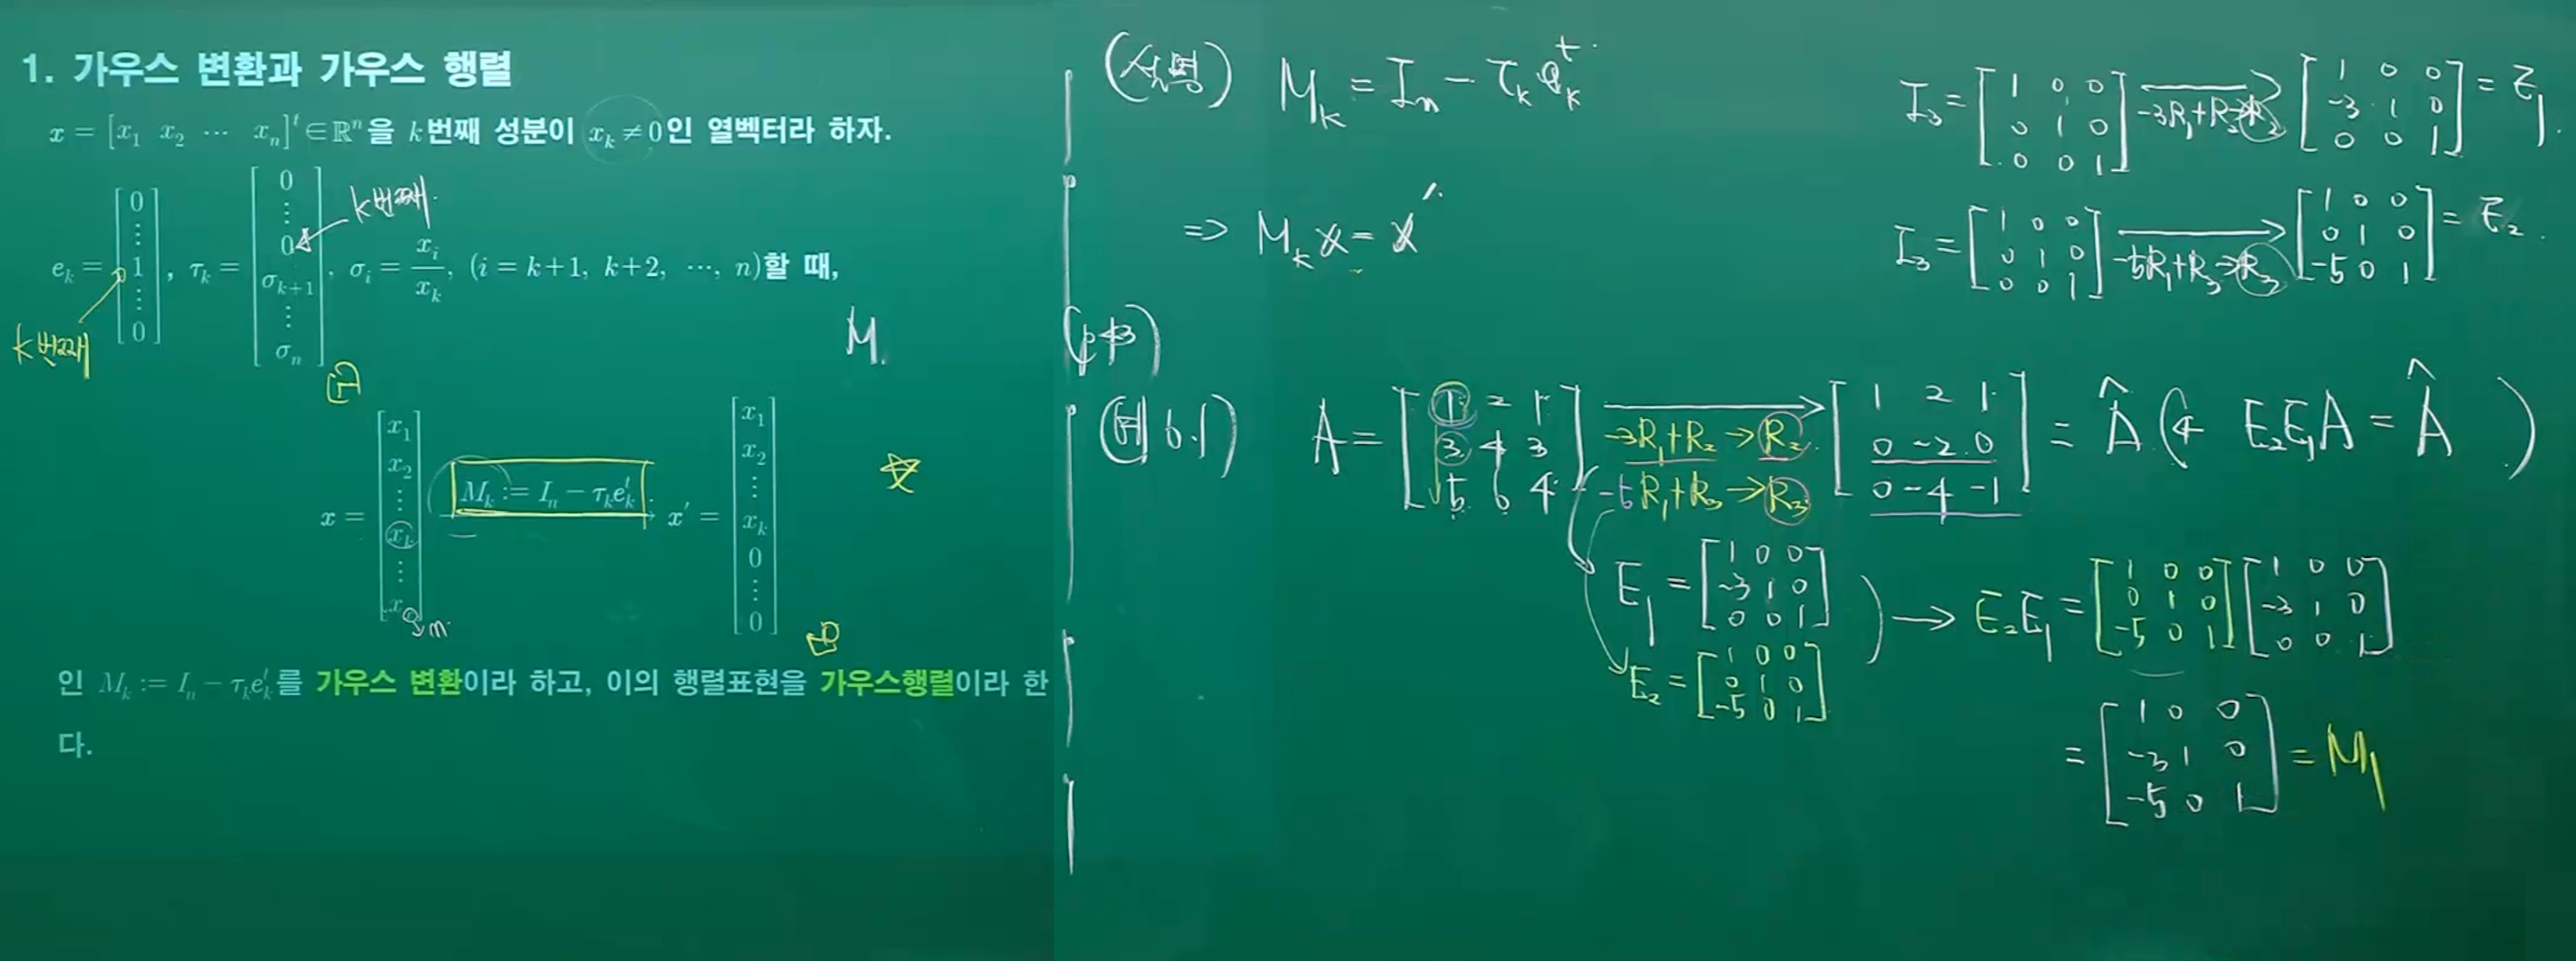 1. 가우스 변환과 가우스 행렬
x = [x₁ x₂ ⋯ xₙ]ᵗ ∈ ℝⁿ을 k번째 성분이 xₖ ≠ 0인 열벡터라 하자.
eₖ = [0 ⋮ 1 ⋮ 0], τₖ = [0 ⋮ 0 σₖ₊₁ ⋮ σₙ], σᵢ = xᵢ/xₖ, (i = k+1, k+2, ⋯, n)할 때,
k번째
k번째
M
x = [x₁ x₂ ⋮ xₖ ⋮ xₙ] Mₖ := Iₙ − τₖeₖᵗ x′ = [x₁ x₂ ⋮ xₖ 0 ⋮ 0]
n
인 Mₖ := Iₙ − τₖeₖᵗ를 가우스 변환이라 하고, 이의 행렬표현을 가우스행렬이라 한
다.
(설명) Mₖ = Iₙ − τₖeₖᵗ
⇒ Mₖx = x′
I₃ = [1 0 0; 0 1 0; 0 0 1] −3R₁+R₂→R₂ [1 0 0; −3 1 0; 0 0 1] = E₁
I₃ = [1 0 0; 0 1 0; 0 0 1] −5R₁+R₃→R₃ [1 0 0; 0 1 0; −5 0 1] = E₂
(p43)
(예 6.1) A = [1 2 1; 3 4 3; 5 6 4] −3R₁+R₂→R₂ −5R₁+R₃→R₃ [1 2 1; 0 −2 0; 0 −4 −1] = Â (← E₂E₁A = Â)
E₁ = [1 0 0; −3 1 0; 0 0 1]
E₂ = [1 0 0; 0 1 0; −5 0 1]
→ E₂E₁ = [1 0 0; 0 1 0; −5 0 1][1 0 0; −3 1 0; 0 0 1]
= [1 0 0; −3 1 0; −5 0 1] = M₁